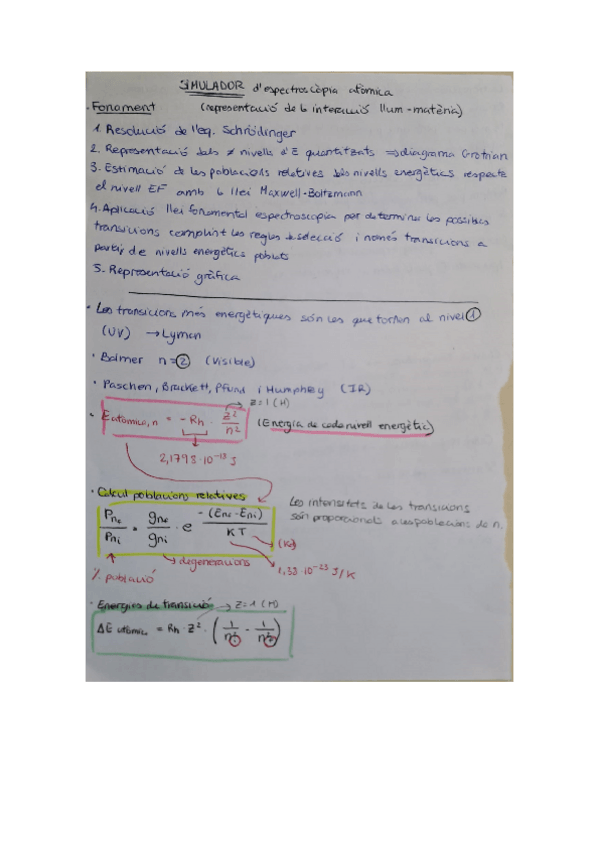 SIMULADOR d'espectroscòpia atòmica
· Fonament (representació de la interacció llum-matèria)
1. Resolució de l'eq. Schrödinger
2. Representació dels ≠ nivells d'E quantitzats ⇒ diagrama Grotrian
3. Estimació de les poblacions relatives dels nivells energètics respecte
el nivell EF amb la llei Maxwell-Boltzmann
4. Aplicació llei fonamental espectroscopia per determinar les possibles
transicions complint les regles de selecció i només transicions a
partir de nivells energètics poblats
5. Representació gràfica
· Les transicions més energètiques són les que tornen al nivel 1
(UV) → Lyman
· Balmer n=2 (visible)
· Paschen, Brackett, Pfund i Humphrey (IR)
Z=1 (H)
· E atòmica, n = -Rh · Z²/n² (Energia de cada nivell energètic)
2,1798·10⁻¹⁸ J
· Càlcul poblacions relatives
Les intensitats de les transicions
són proporcionals a les poblacions de n.
Pne/Pni = gne/gni · e -(Ene-Eni)/KT
(K)
degeneracions
1,38·10⁻²³ J/K
% població
· Energies de transició → Z=1 (H)
ΔE atòmica = Rh · Z² · (1/n₁² - 1/n₂²)